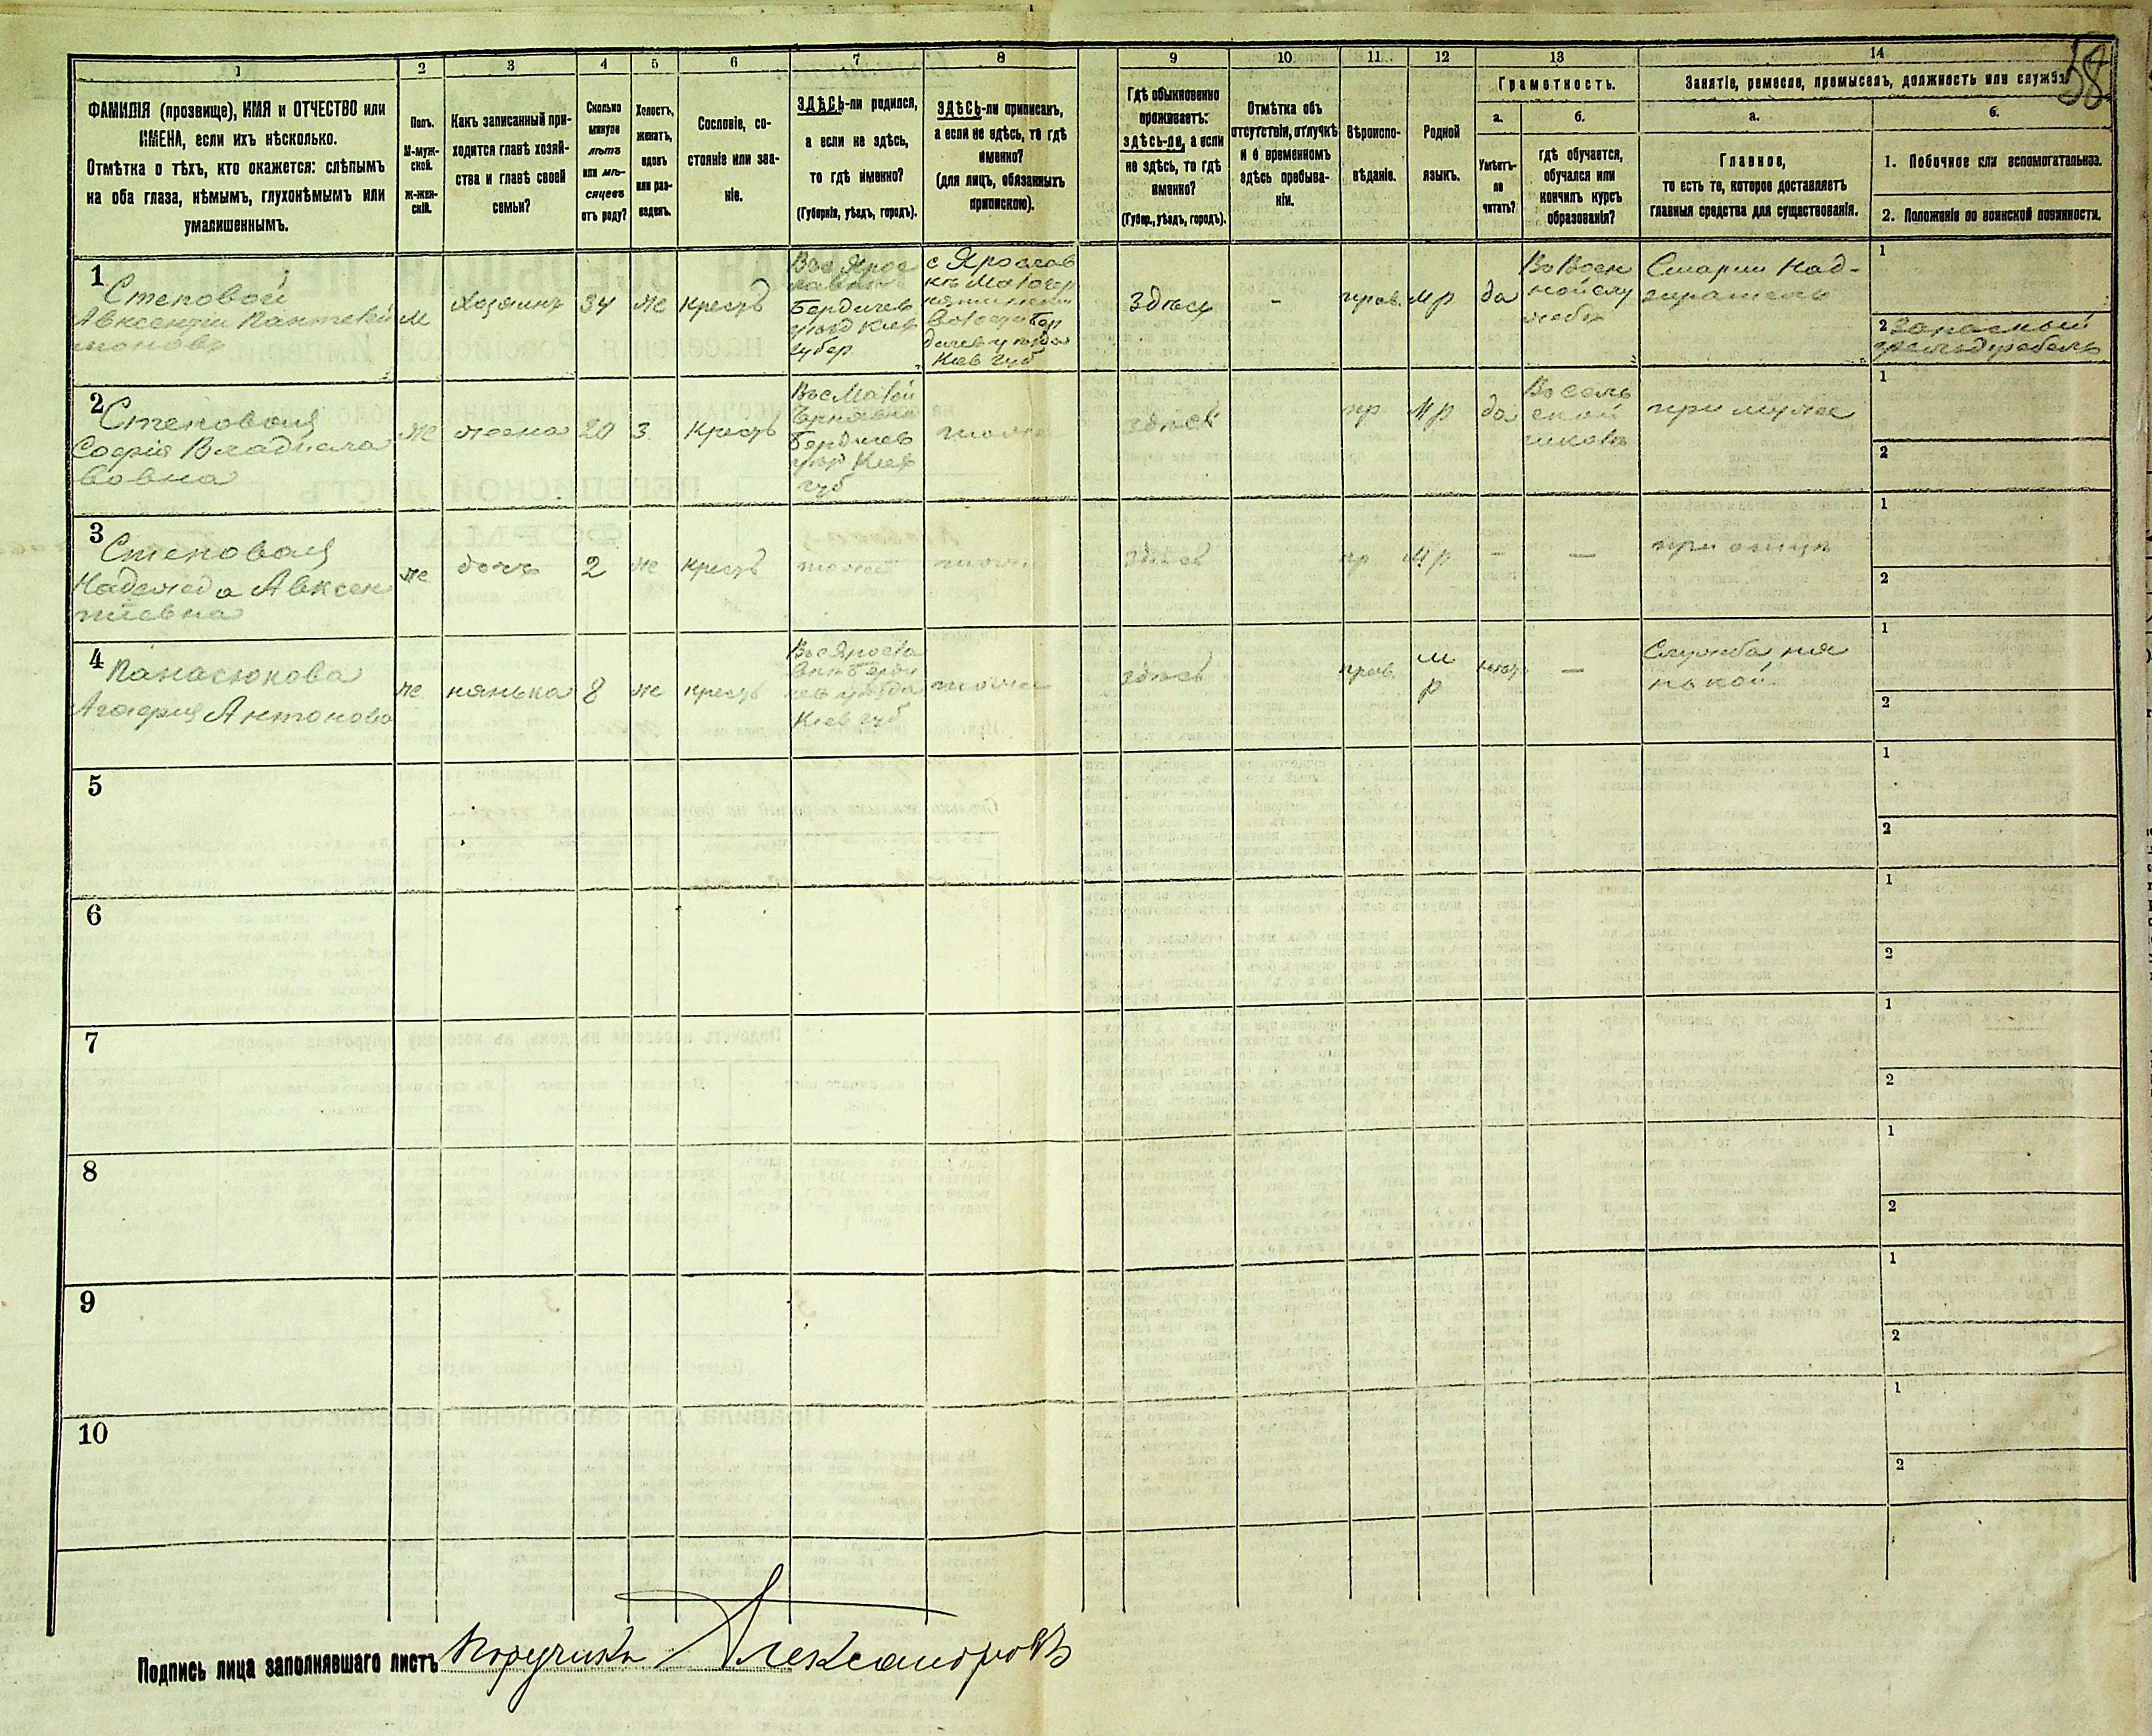 58
1 2 3 4 5 6 7 8 9 10 11 12 13 14
ФАМИЛІЯ (прозвище), ИМЯ и ОТЧЕСТВО или
ИМЕНА, если ихъ нѣсколько.
Отмѣтка о тѣхъ, кто окажется: слѣпымъ
на оба глаза, нѣмымъ, глухонѣмымъ или
умалишеннымъ.
Полъ.
М-муж-
ской.
Ж-жен-
скій.
Какъ записанный при-
ходится главѣ хозяй-
ства и главѣ своей
семьи?
Сколько
минуло
лѣтъ
или мѣ-
сяцевъ
отъ роду?
Холостъ,
женатъ,
вдовъ
или раз-
веденъ.
Сословіе, со-
стояніе или зва-
ніе.
ЗДѢСЬ-ли родился,
а если не здѣсь,
то гдѣ именно?
(Губернія, уѣздъ, городъ).
ЗДѢСЬ-ли приписанъ,
а если не здѣсь, то гдѣ
именно?
(для лицъ, обязанныхъ
припискою).
Гдѣ обыкновенно
проживаетъ:
здѣсь-ли, а если
не здѣсь, то гдѣ
именно?
(Губер., уѣздъ, городъ).
Отмѣтка объ
отсутствіи, отлучкѣ
и о временномъ
здѣсь пребыва-
ніи.
Вѣроиспо-
вѣданіе.
Родной
языкъ.
Грамотность.
а.
Умѣетъ-
ли
читать?
б.
гдѣ обучается,
обучался или
кончилъ курсъ
образованія?
Занятіе, ремесло, промыселъ, должность или служба.
а.
Главное,
то есть то, которое доставляетъ
главныя средства для существованія.
б.
1. Побочное или вспомогательное.
2. Положеніе по воинской повинности.
1
Степовой
Авксентій
м
Хозяинъ
34
же
крестъ
Бердичев
Кіев
губер.
с Ярослав
Кіев губ
Здѣсь
-
прав.
М р
да
Во Воен
ной слу
жбѣ
Старш Над-
зиратель
1
2 Запасный
2
Степовая
Софія Владисла
вовна
же
жена
20
З.
Крестъ
Бердичев
Кіев
губ
тоже
здѣсь
пр
М р
да
Во сель
ской
школѣ
при мужѣ
1
2
3
Степовая
Надежда Авксен
тіевна
же
дочь
2
же
крестъ
тоже
тоже
здѣсь
пр
М р
-
—
при отцѣ
1
2
4
Панасюкова
Антонова
же
нянька
8
же
крестъ
Кіев губ
тоже
здѣсь
прав.
м
р
—
Служба ня
нькой
1
2
5
1
2
6
1
2
7
1
2
8
1
2
9
1
2
10
1
2
Подпись лица заполнявшаго листъ Поручикъ Александровъ